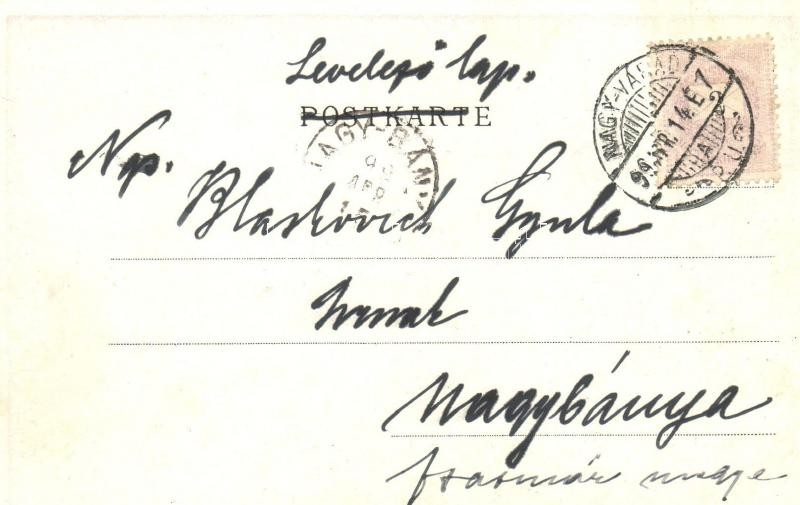 Levelező lap.
POSTKARTE
NAGY-VÁRAD
99 APR. 14. E 7
NAGY-BÁN
APR
Np.
Blaskovich Gyula
Urnak
Nagybánya
Szatmár megye